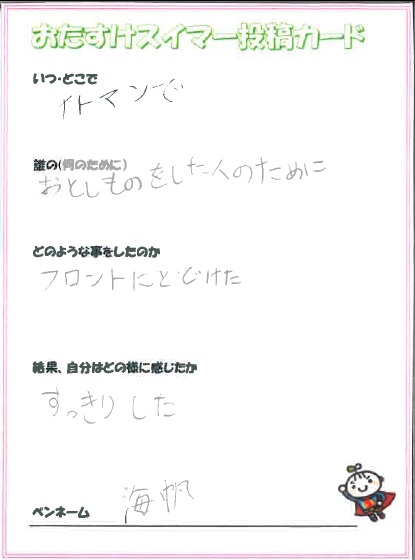 おたすけスイマー投稿カード
いつ・どこで
イトマンで
誰の(何のために)
おとしものをした人のために
どのような事をしたのか
フロントにとどけた
結果、自分はどの様に感じたか
すっきりした
ペンネーム 海帆